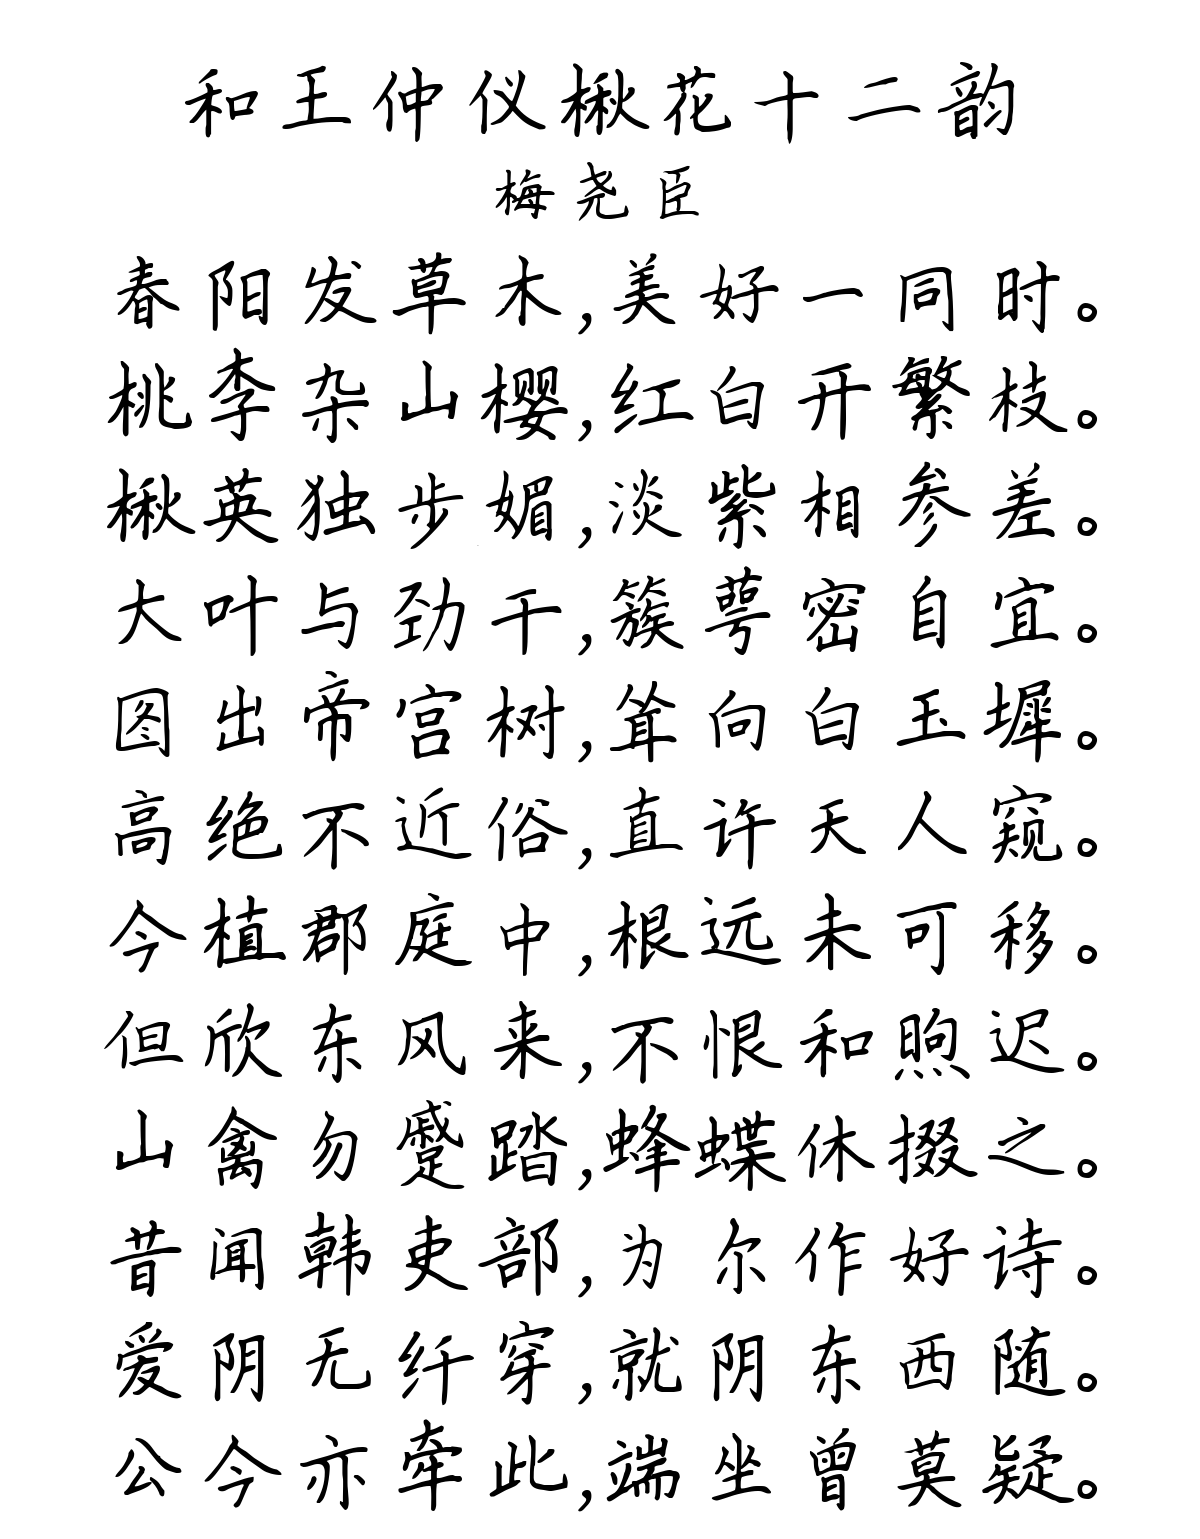 和王仲仪楸花十二韵
梅尧臣
春阳发草木,美好一同时。
桃李杂山樱,红白开繁枝。
楸英独步媚,淡紫相参差。
大叶与劲干,簇萼密自宜。
图出帝宫树,耸向白玉墀。
高绝不近俗,直许天人窥。
今植郡庭中,根远未可移。
但欣东风来,不恨和煦迟。
山禽勿蹙踏,蜂蝶休掇之。
昔闻韩吏部,为尔作好诗。
爱阴无纤穿,就阴东西随。
公今亦牵此,端坐曾莫疑。